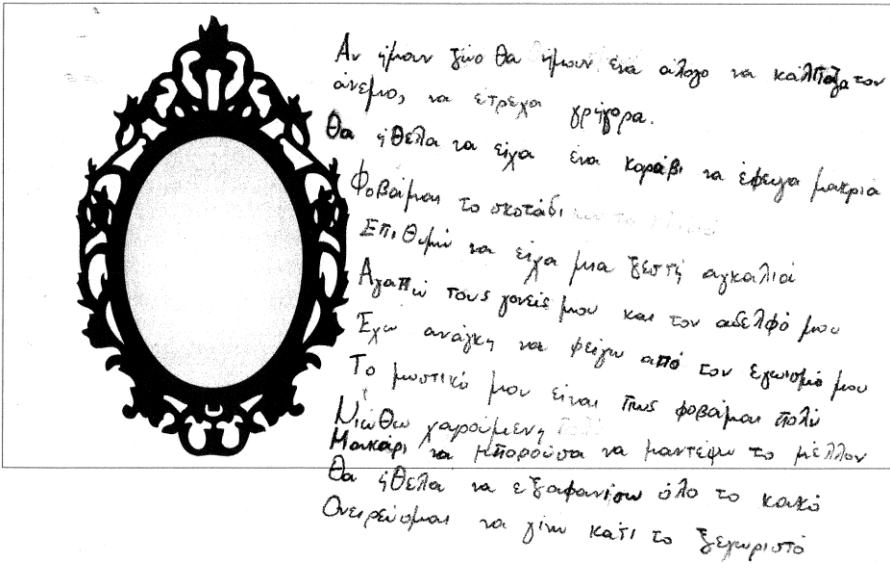 Αν ήμουν ζώο θα ήμουν ένα άλογο να κάλπαζα τον
άνεμο, να έτρεχα γρήγορα.
Θα ήθελα να είχα ένα καράβι να έφευγα μακριά
Φοβάμαι το σκοτάδι
Επιθυμώ να είχα μια ζεστή αγκαλιά
Αγαπώ τους γονείς μου και τον αδελφό μου
Έχω ανάγκη να φύγω από τον εγωισμό μου
Το μυστικό μου είναι πως φοβάμαι πολύ
Νιώθω χαρούμενη
Μακάρι να μπορούσα να μαντέψω το μέλλον
Θα ήθελα να εξαφανίσω όλο το κακό
Ονειρεύομαι να γίνω κάτι το ξεχωριστό